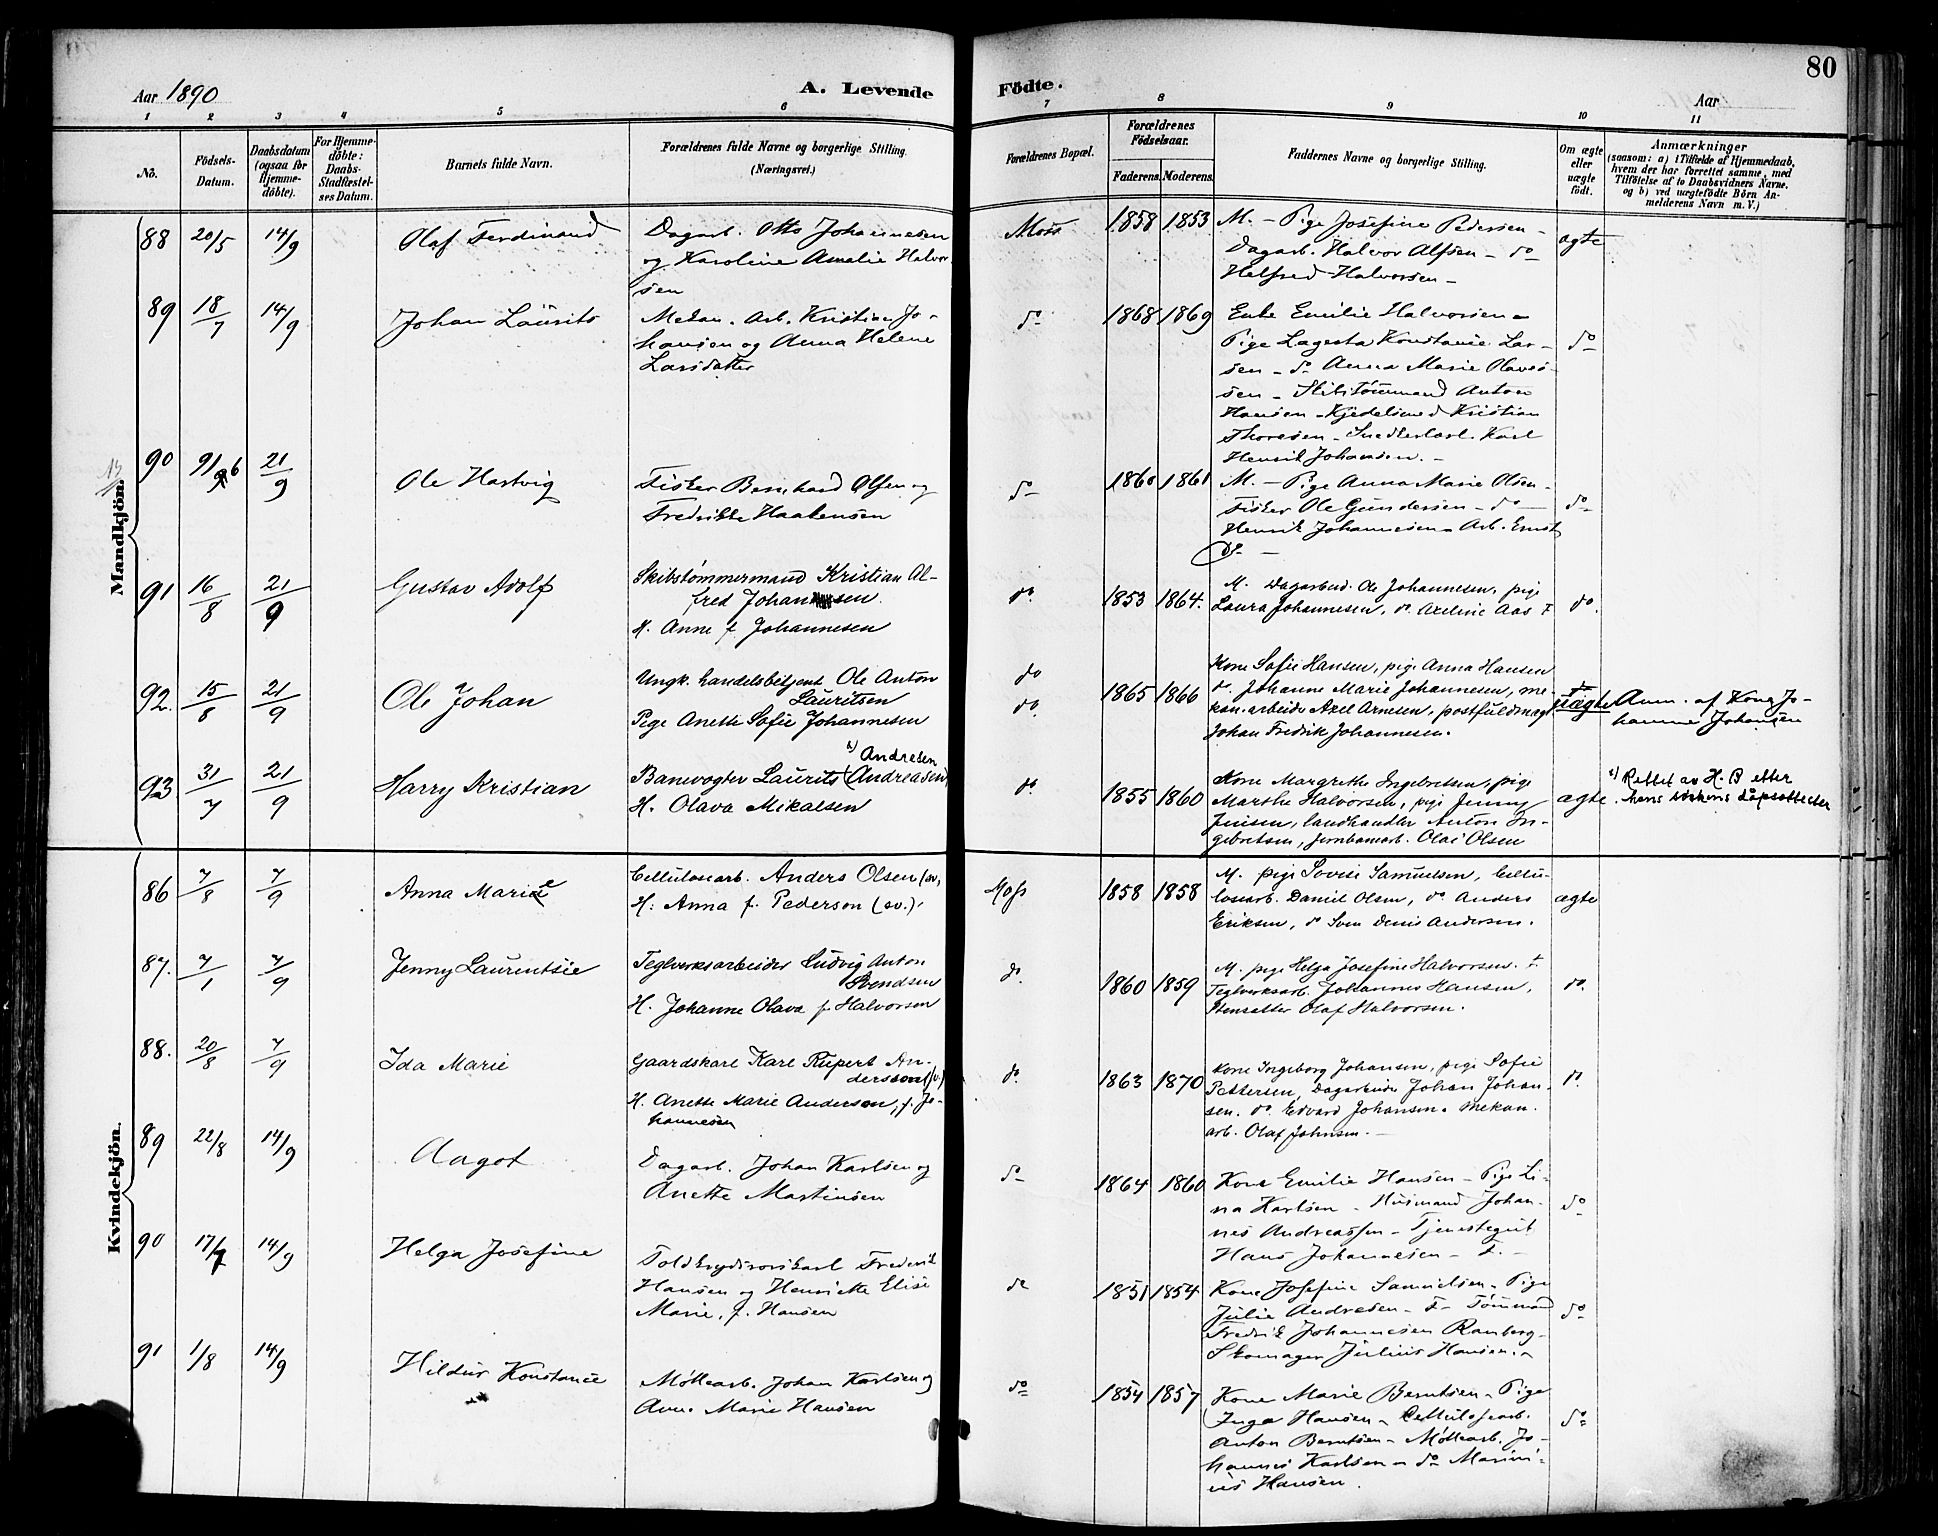 80
Aar 1890
A. Levende
Födte.
Aar
1 2 3 4 5 6 7 8 9 10 11
No.
Födsels-
Datum.
Daabsdatum
(ogsaa for
Hjemme-
döbte).
For Hjemme-
döbte:
Daabs-
Stadfæstel-
ses Datum.
Barnets fulde Navn.
Forældrenes fulde Navne og borgerlige Stilling.
(Næringsvei.)
Forældrenes Bopæl.
Forældrenes
Födselsaar.
Faderens. Moderens.
Faddernes Navne og borgerlige Stilling.
Om ægte
eller
uægte
födt.
Anmærkninger
(saasom: a) i Tilfælde af Hjemmedaab,
hvem der har forrettet samme, med
Tilföielse af to Daabsvidners Navne.
og b) ved uægtefödte Börn An-
melderens Navn m. V.)
Mandkjön.
88 20/5 14/9 Olaf Ferdinand
Dagarb. Otto Johannesen
og Karoline Amalie Halvor
sen
Moss 1858 1853
M. – Pige Josefine Pedersen –
Dagarb. Halvor Alfsen – do
Helfred Halvorsen –
ægte
89 18/7 14/9 Johan Laurits
Mekan. Arb. Kristian Jo-
hansen og Anna Helene
Larsdatter
do 1868 1869
Enke Emilie Halvorsen –
Pige Lagerta Konstanse Lar-
sen – do Anna Marie Olave
sen – Skibstømmand Anton
Hansen – Kjedelsmed Kristian
Thoresen – Snedkerlærl. Karl
Henrik Johansen. –
do
90 9/6 21/9 Ole Hartvig
Fisker Bernhard Olsen og
Fredrikke Haakensen
do 1860 1861
M. – Pige Anna Marie Olsen –
Fisker Ole Gundersen – do –
Henrik Johannesen – Arb. Ernst
do –
do
91 16/8 21/9 Gustav Adolf
Skibstømmermand Kristian Al-
fred Johansen.
H. Anne f. Johannesen
do. 1853 1864.
M. Dagarbeid. Ole Johannesen, pige
Laura Johannesen, do. Axeline Aas F
do.
92. 15/8 21/9 Ole Johan
Ungk. handelsbetjent Ole Anton
Lauritsen
Pige Anette Sofie Johannesen
do
do. 1865 1866
Kone Sofie Hansen, pige Anna Hansen
do. Johanne Marie Johannesen, me-
kan. arbeider Axel Arnesen, postfuldmægt
Johan Fredrik Johannesen.
uægte
Anm. af Kone Jo-
hanne Johansen
93. 31/7 21/9 Harry Kristian
x) Andresen
Banevogter Laurits (Andreasen)
H. Olava Mikalsen
do. 1855 1860
Kone Margrethe Ingebretsen, pige
Marthe Halvorsen, pige Jenny
Jensen, landhandler Anton In-
gebretsen, jernbanearb. Olai Olsen
ægte.
x) Rettet av H. B etter
hans søskens dåpsattester
Kvindekjön.
86 7/8 7/9 Anna Marie
Cellulosearb. Anders Olsen (sv.
H. Anna f. Pederson (sv.).
Moss 1858 1858
M. pige Lovise Samuelsen, Cellu-
losearb. Daniel Olsen, do. Anders
Eriksen, do Sven Denis Andersen.
ægte
87. 7/1 7/9 Jenny Laurentsie
Teglverksarbeider Ludvig Anton
Svendsen
H. Johanne Olava f. Halvorsen
do. 1860 1859
M. pige Helga Josefine Halvorsen. F.
Teglverksarb. Johannes Hansen,
Stensætter Olaf Halvorsen.
do.
88. 20/8 7/9 Ida Marie
Gaardskarl Karl Rupert An-
dersson (sv.)
H. Anette Marie Anderson, f. Jo-
hannesen
do. 1863 1870
Kone Ingeborg Johansen, pige Sofie
Pettersen, Dagarbeider Johan Johan-
sen. do. Edvard Johansen. Mekan.
arb. Olaf Johnsen. –
do.
89 22/8 14/9 Aagot
Dagarb. Johan Karlsen og
Anette Martinsen
do 1864 1860
Kone Emilie Hansen – Pige Li-
na Karlsen – Husmand Johan-
nes Andreassen – Tjenestegut
Hans Johannesen – F. –
do
90 17/7 14/9 Helga Josefine
Toldkrydsrorskarl Frederik
Hansen og Henriette Elise
Marie, f. Hansen
do 1851 1854
Kone Josefine Samuelsen – Pige
Julie Andresen – F – Tømmand
Fredrik Johannesen Ramberg –
Skomager Julius Hansen. –
do
91 1/8 14/9 Hildur Konstance
Møllearb. Johan Karlsen og
Anne Marie Hansen
do 1854 1857
Kone Marie Berntsen – Pige
Inga Hansen – Cellulosearb.
Anton Berntsen – Møllearb. Jo-
hannes Karlsen – do Marini-
us Hansen.
do